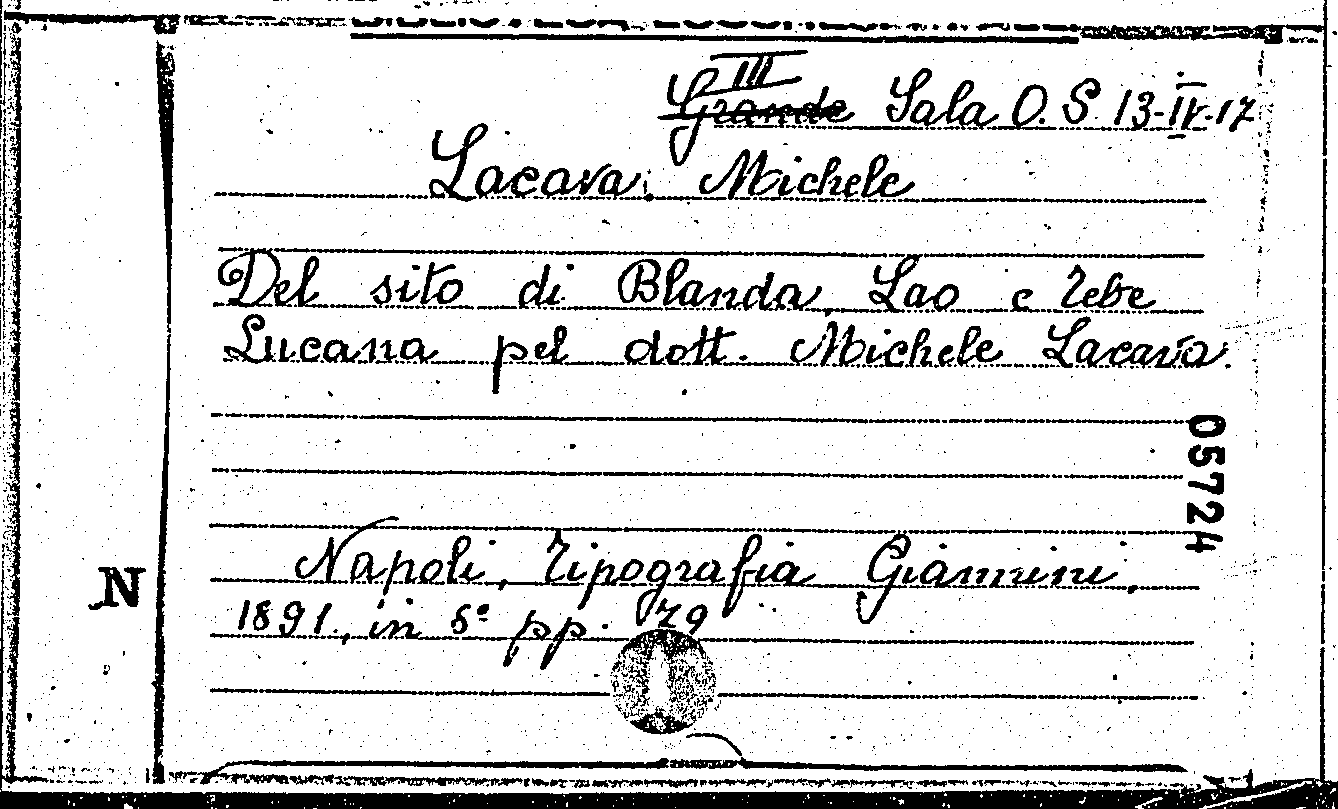 III
Grande Sala O. S. 13-IV-17
Lacava, Michele
Del sito di Blanda, Lao e Tebe
Lucana pel dott. Michele Lacava.
05724
Napoli, Tipografia Giannini,
N
1891., in 8° pp. 79